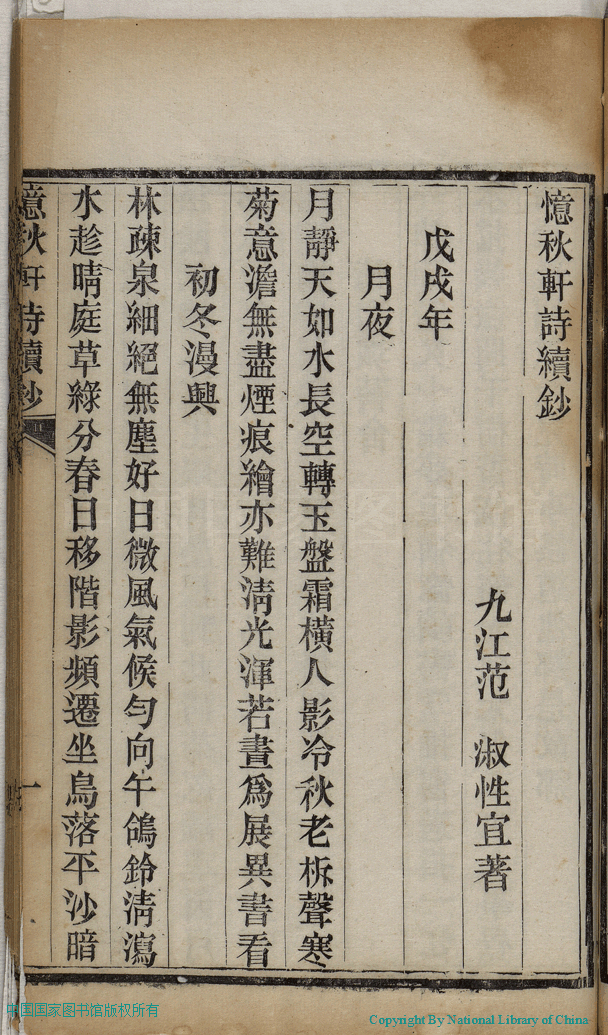 憶秋軒詩續鈔
九江范 淑性宜著
戊戌年
月夜
月靜天如水長空轉玉盤霜橫人影冷秋老柝聲寒
菊意澹無盡煙痕繪亦難淸光渾若晝爲展異書看
初冬漫興
林疎泉細絕無塵好日微風氣候勻向午鴿鈴淸瀉
水趁晴庭草綠分春日移階影頻遷坐鳥落平沙暗
憶秋軒詩續鈔
一
中国国家图书馆版权所有
Copyright By National Library of China